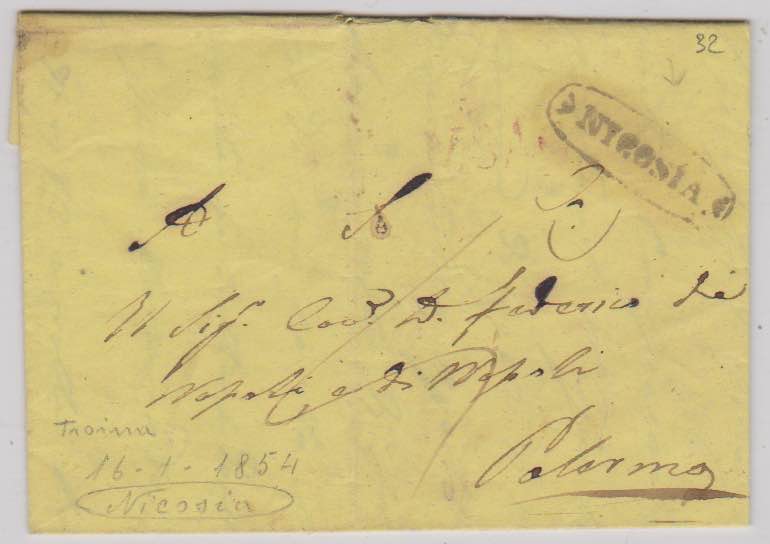 32
NICOSIA.
A S
Il Sigr. Cavr. D. Federico di
Napoli e di Napoli
Palermo
Troina
16-1-1854
Nicosia